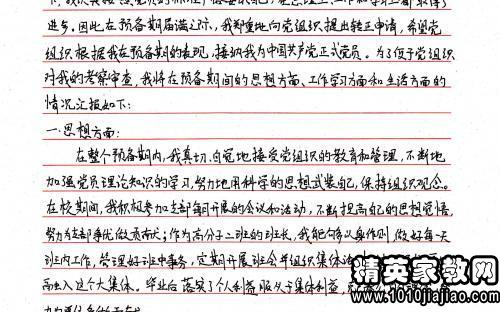 进步,因此在预备期届满之际,我郑重地向党组织提出转正申请,希望党
组织根据我在预备期的表现,接纳我为中国共产党正式党员。为了便于党组织
对我的考察审查,我将在预备期间的思想方面、工作学习方面和生活方面的
情况汇报如下:
一.思想方面:
在整个预备期内,我真切、自觉地接受党组织的教育和管理,不断地
加强党员理论知识的学习,努力地用科学的思想武装自己,保持组织观念。
在校期间,我积极参加支部每月开展的会议和活动,不断提高自己的思想觉悟,
努力为支部事业做贡献;作为高分子二班的班长,我能够以身作则做好每一天
班内工作,管理好班中事务,定期开展班会并组织集体活
而出入这个大集体。毕业后落实了个人利益服从于集体利益,
精英家教网
www.1010jiajiao.com